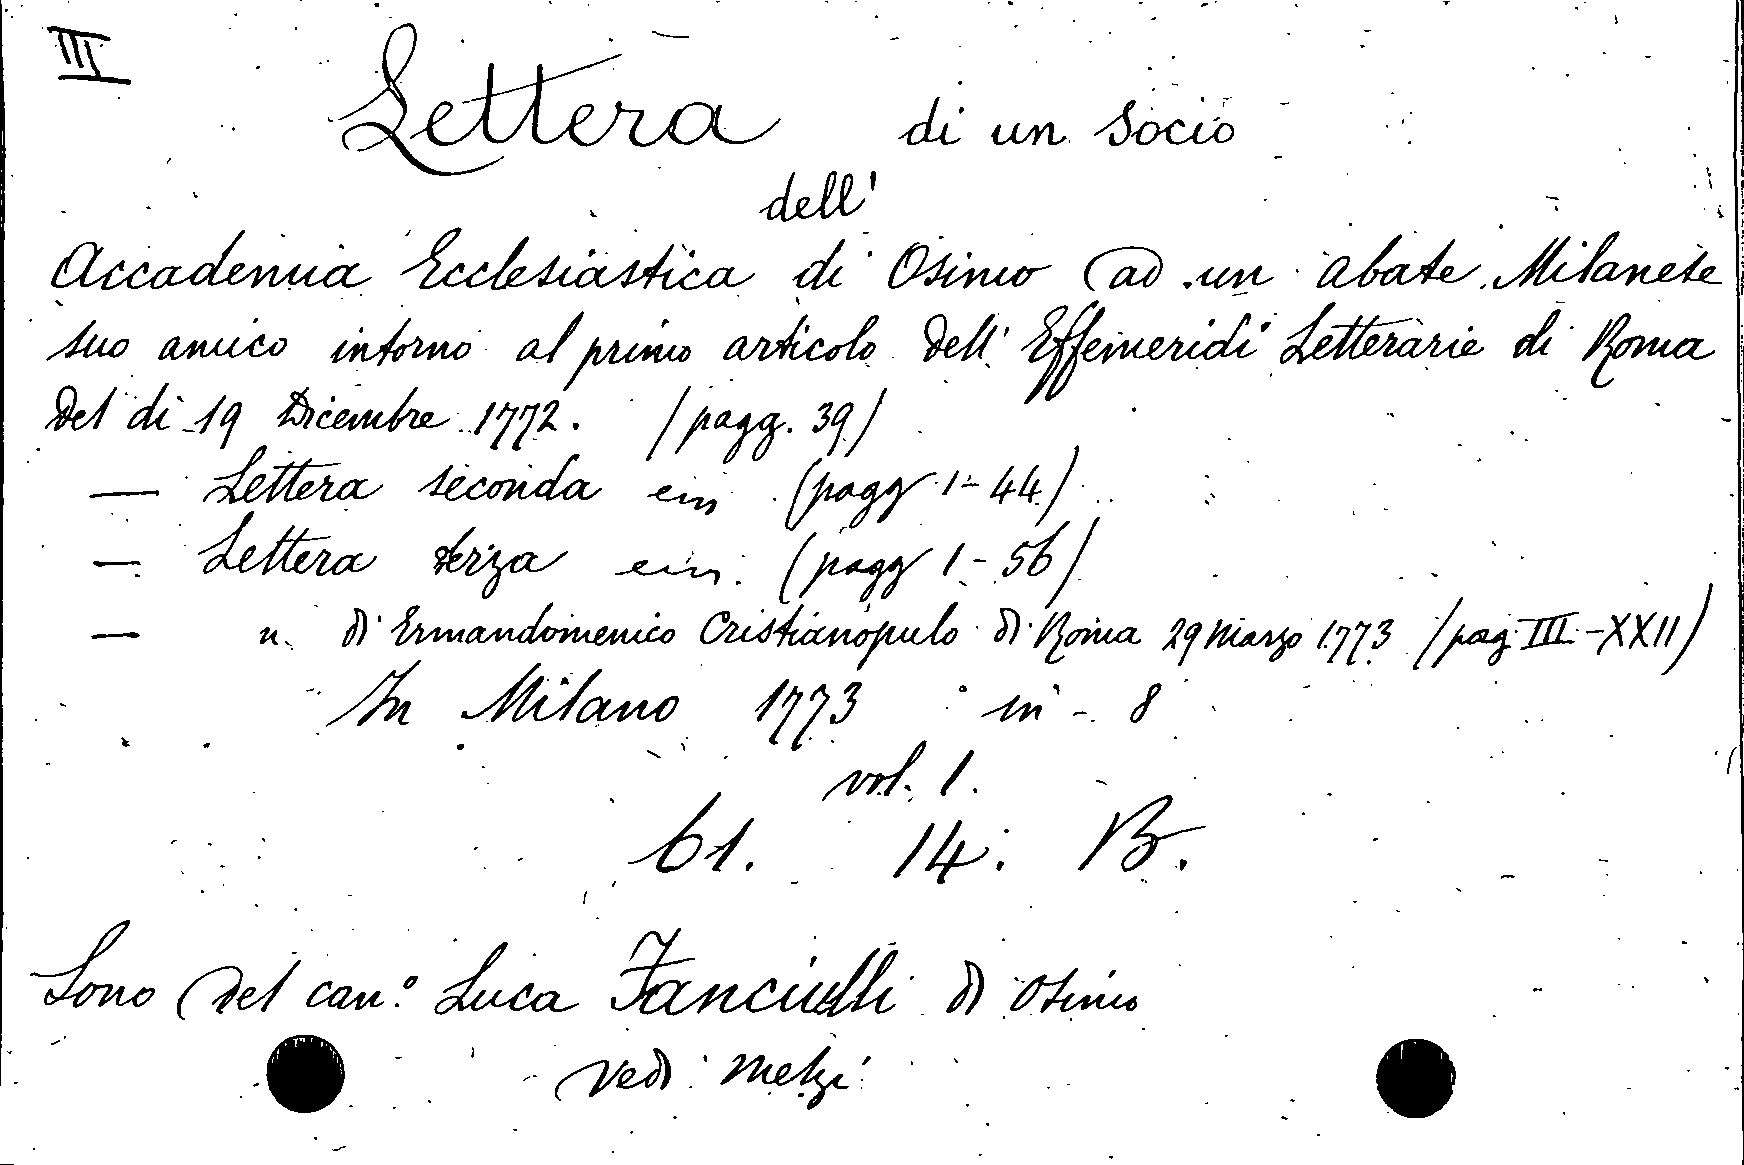 III
Lettera di un socio
dell'
Accademia Ecclesiastica di Osimo ad un abate Milanese
suo amico intorno al primo articolo dell' Effemeridi Letterarie di Roma
del di 19 Dicembre 1772. (pagg. 39)
— Lettera seconda (pagg 1-44)
— Lettera terza (pagg 1-56)
— di Ermandomenico Cristianopulo di Roma 29 Marzo 1773 (pag III-XXII)
In Milano 1773 in - 8
vol. 1.
61. 14. B.
Sono del can.° Luca Fanciulli di Osimo
vedi Melzi